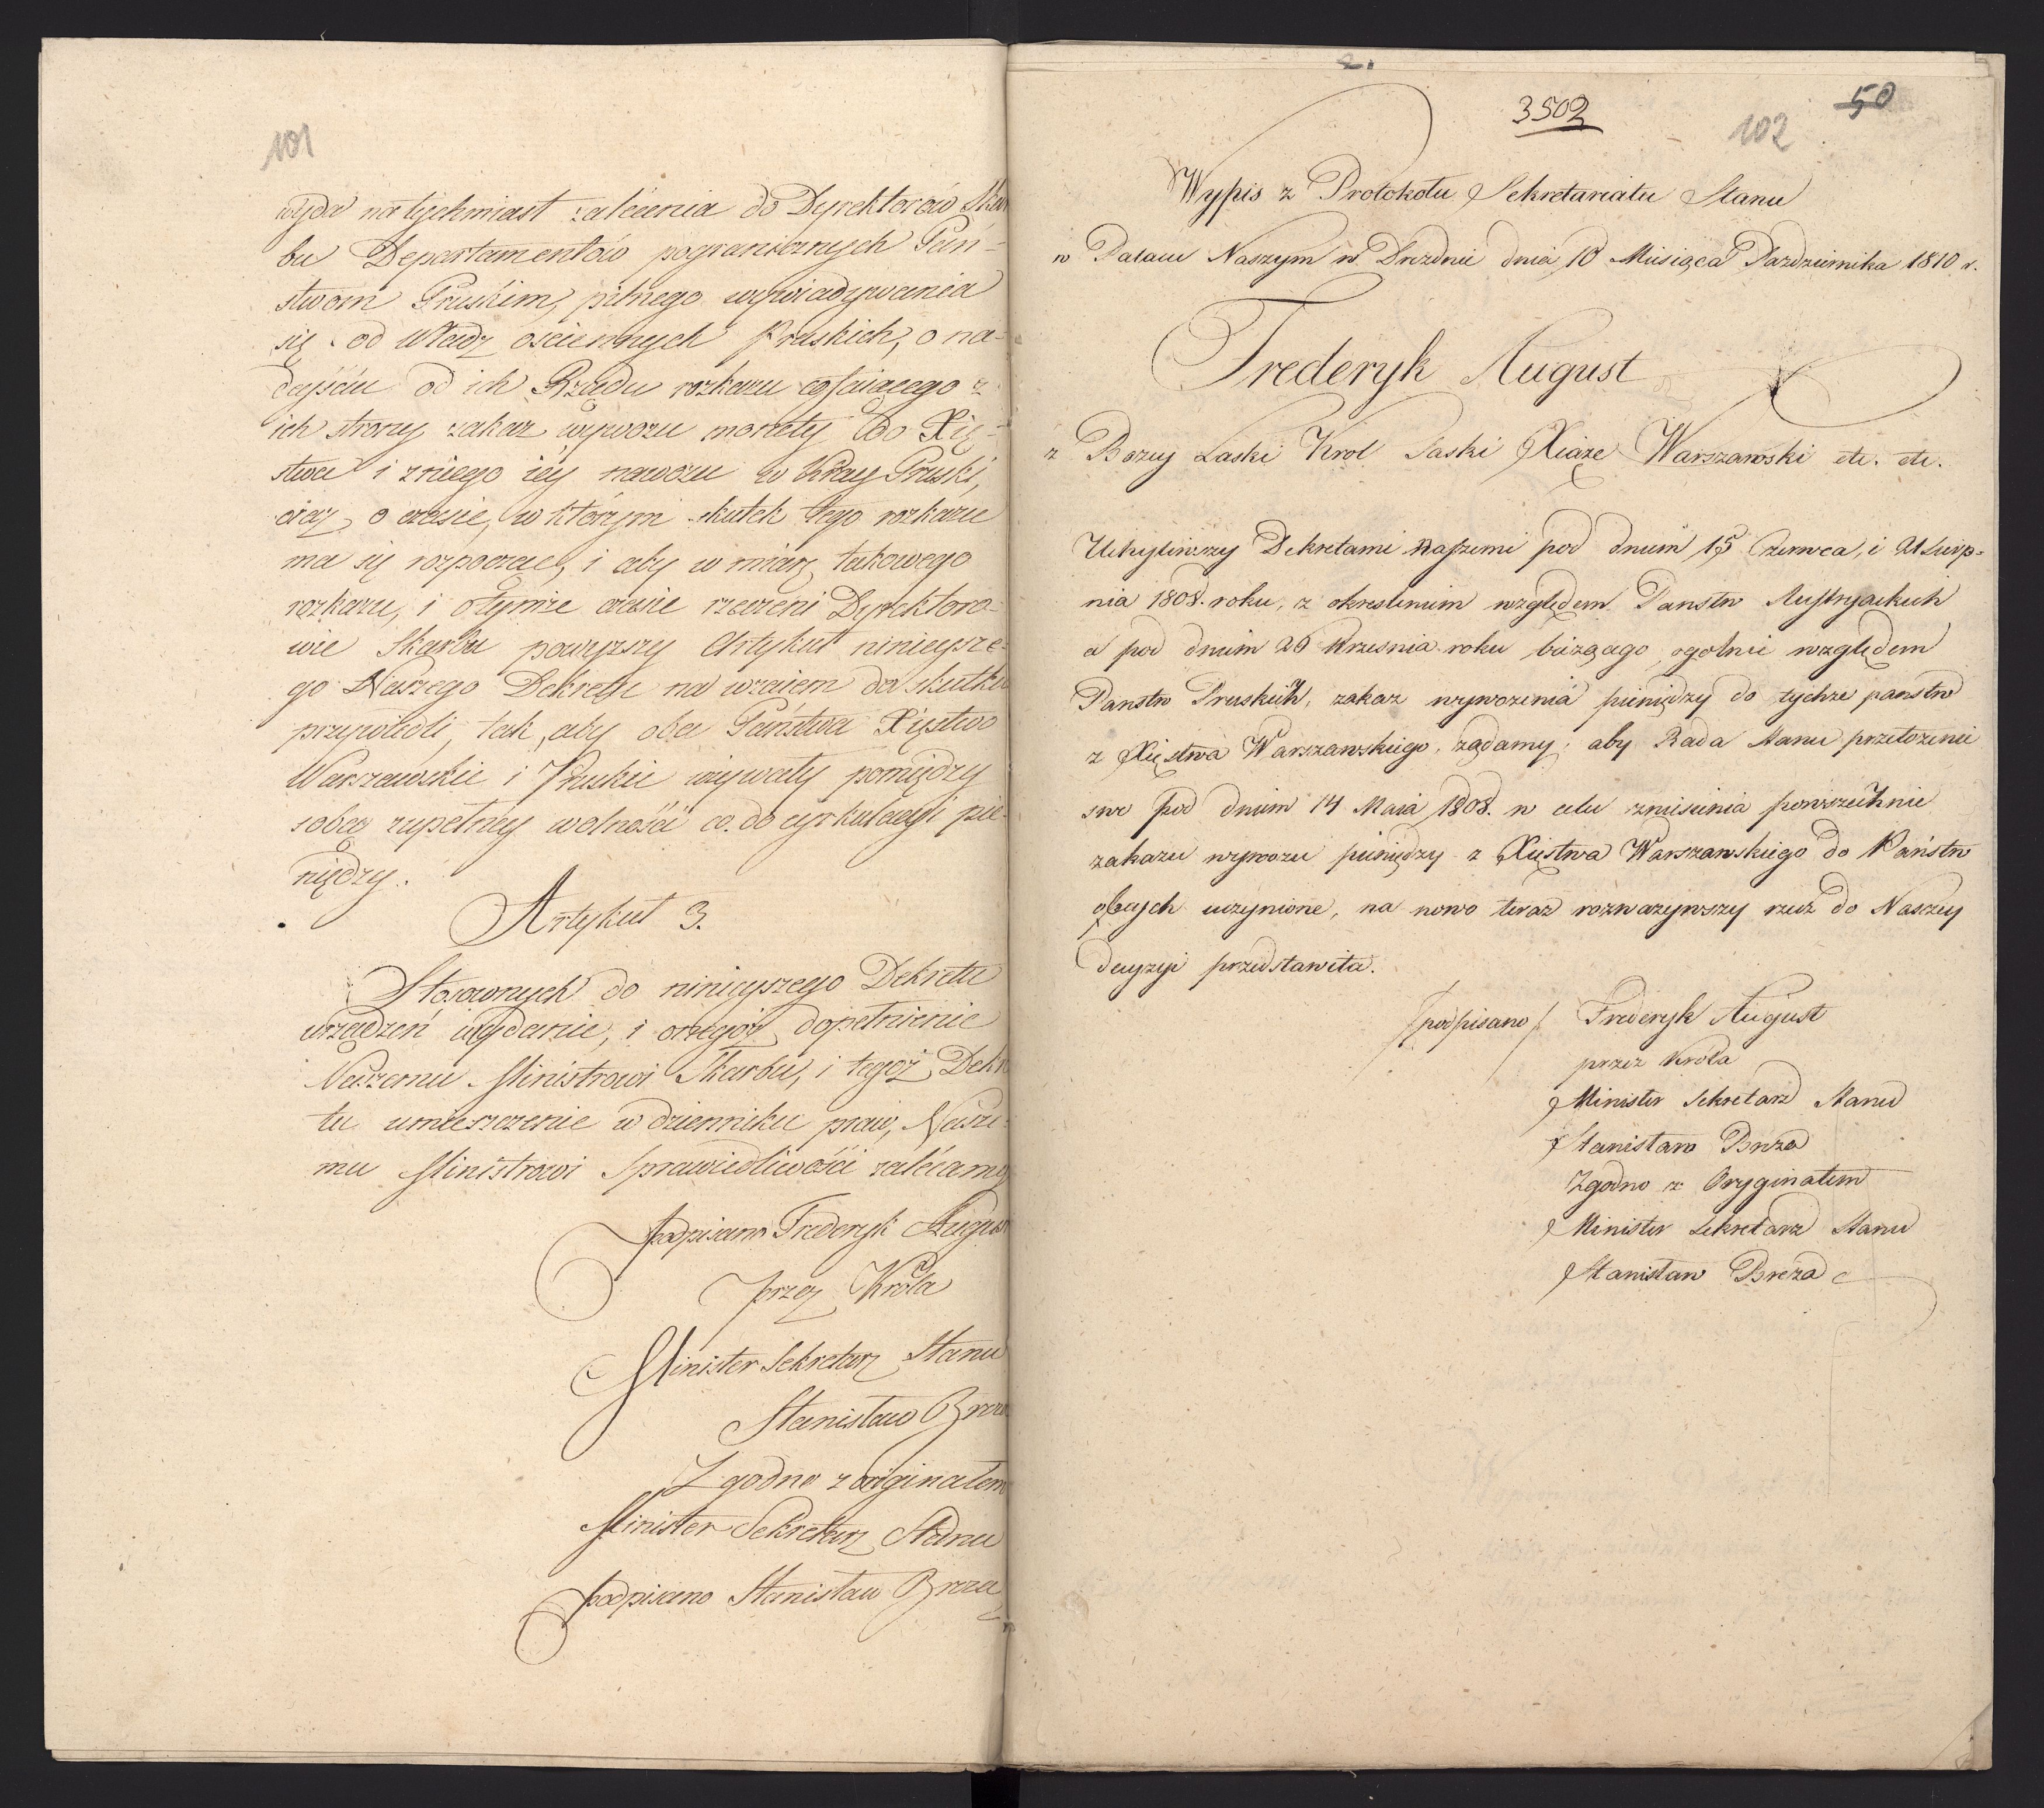 101
wyda natychmiast zalecenia do Dyrektorów Skar
bu Departamentów pogranicznych Pań-
stwom Pruskim, pilnego wywiadywania
się od Władz ościennych Pruskich, o na-
deyściu od ich Rządu rozkazu cofaiącego z
ich strony zakaz wywozu monety do Xię-
stwa i z niego iey nawozu w Kray Pruski,
oraz o czasie, w którym skutek tego rozkazu
ma się rozpocząć, i aby w miarę takowego
rozkazu, i o tymże czasie rzeczeni Dyrektoro-
wie Skarbu powyższy Artykuł ninieysze-
go Naszego Dekretu na wzaiem do skutku
przywiedli, tak, aby oba Państwa Xięstwo
Warszawskie i Pruskie używały pomiędzy
sobą zupełney wolności co do cyrkulacyi pie-
niędzy.
Artykuł 3.
Stosownych do ninieyszego Dekretu
urządzeń wydanie, i onegoż dopełnienie
Naszemu Ministrowi Skarbu, i tegoż Dekre
tu umieszczenie w dzienniku praw, Nasze-
mu Ministrowi Sprawiedliwości zalécamy
podpisano Frederyk August
przez Króla
Minister Sekretarz Stanu
Stanisław Breza
Zgodno z originałem
Minister Sekretarz Stanu
podpisano Stanisław Breza
2.
3502
102
50
Wypis z Protokołu Sekretariatu Stanu
w Pałacu Naszym w Dreznie dnia 10 Miesiąca Pazdziernika 1810 r.
Frederyk August
z Bozey Łaski Krol Saski Xiąze Warszawski etc. etc.
Uchyliwszy Dekretami Naszemi pod dniem 15 Czerwca, i 21 Sierp-
nia 1808. roku, z okresleniem względem Panstw Austryackich
a pod dniem 26 Wrzesnia roku biezącego ogolnie względem
Panstw Pruskich, zakaz wywozenia pieniędzy do tychze panstw
z Xięstwa Warszawskiego, ządamy; aby Rada Stanu przełozenie
swe pod dniem 14 Maia 1808. w celu zniesienia powszechnie
zakazu wywozu pieniędzy z Xięstwa Warszawskiego do Państw
obcych uczynione, na nowo teraz rozwazywszy rzecz do Naszey
decyzyi przedstawiła.
/podpisano/ Frederyk August
przez Króla
Minister Sekretarz Stanu
Stanisław Breza
Zgodno z Oryginałem
Minister Sekretarz Stanu
Stanisław Breza